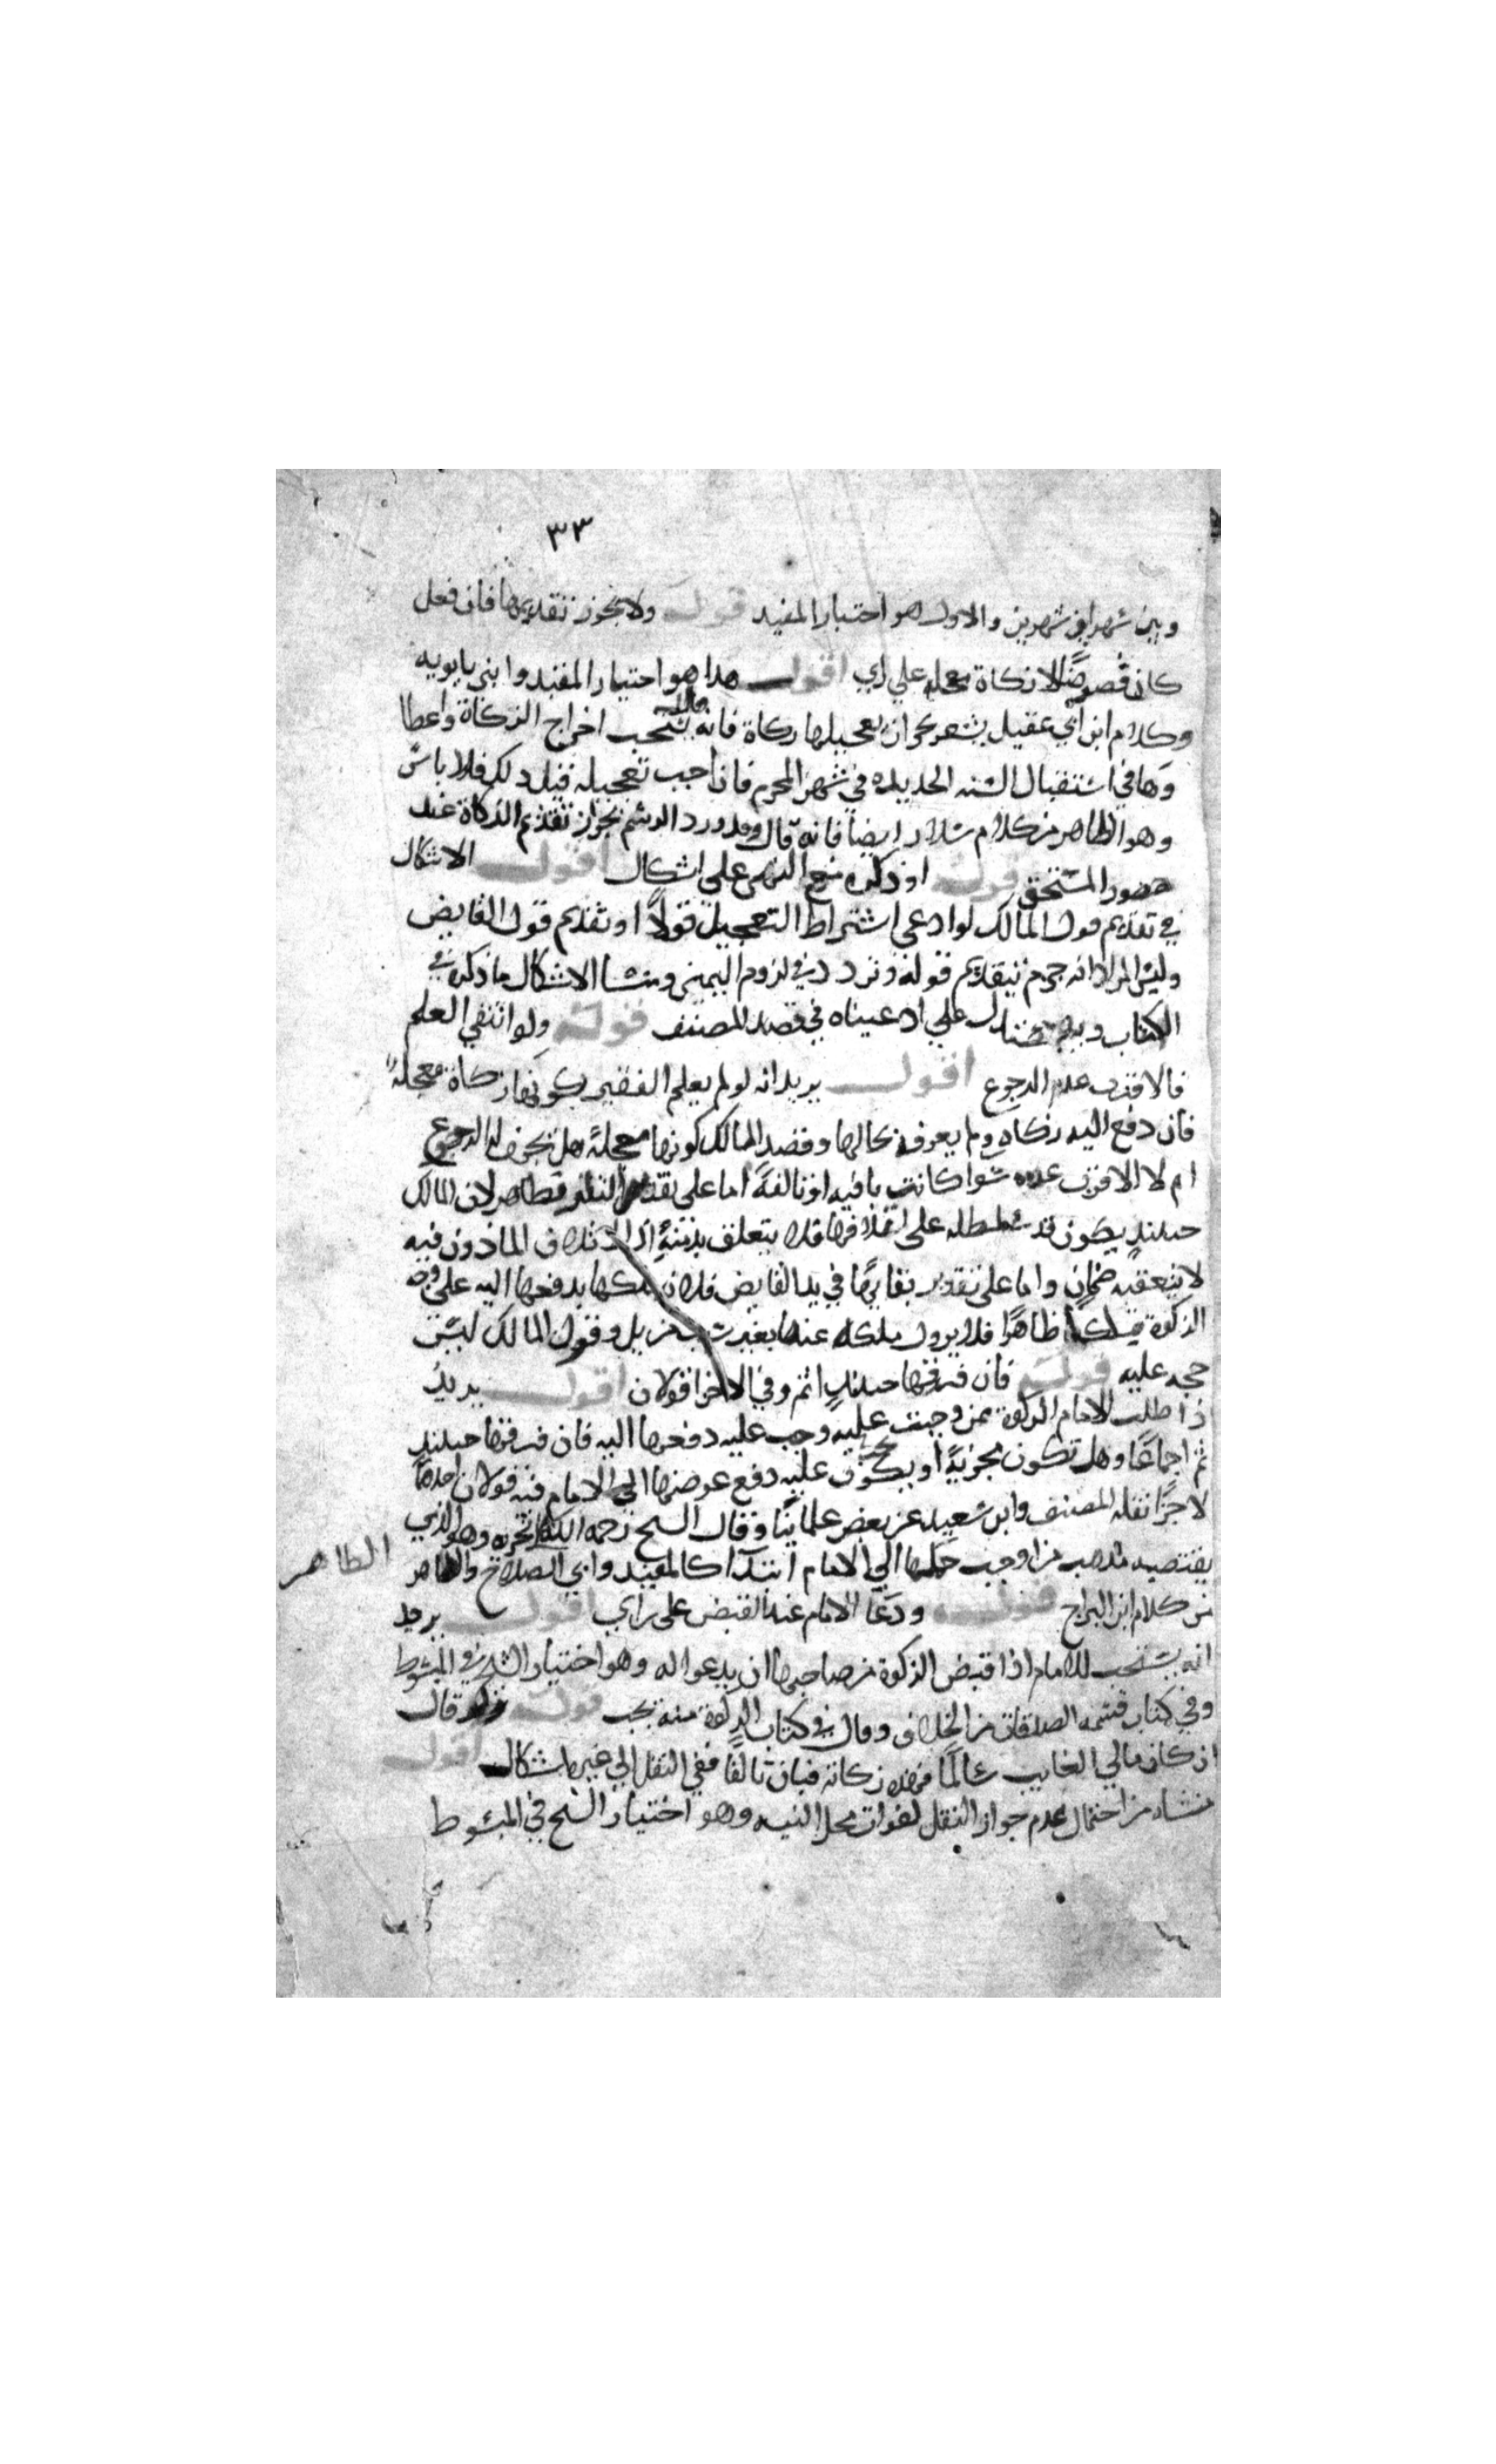 ٣٣
وبين شهر او شهرين والاول هو اختيار المفيد قوله ولا يجوز تقديمها فان فعل
كان قرضا لا زكاة معجله علي راي اقول هذا هو اختيار المفيد وابني بابويه
وكلام ابن ابي عقيل يشعر بجواز تعجيلها زكاة فانه قال يستحب اخراج الزكاة واعطا
وها في استقبال السنه الجديده في شهر المحرم فان احب تعجيله قبل ذلك فلا باس
وهو الظاهر من كلام سلار ايضا فانه قال وقد ورد الرسم بجواز تقديم الزكاة عند
حضور المستحق قوله او ذكره مع اليمين على اشكال اقول الاشكال
في تقديم قول المالك لو ادعى اشتراط التعجيل قولا او تقديم قول القابض
وليس المراد انه جزم بتقديم قوله وتردد في لزوم اليمين ومنشا الاشكال ما ذكره في
الكتاب علي ما ادعيناه في قصد المصنف قوله ولو انتفي العلم
فالاقرب عدم الرجوع اقول يريد انه لو لم يعلم الفقير بكونها زكاة معجلة
فان دفع اليه زكاه ولم يعرفه بحالها وقصد المالك كونها معجلة هل يجوز له الرجوع
ام لا الاقرب عدمه سوا كانت باقيه او تالفة اما على تقدير التلف فظاهر لان المالك
حينئذ يكون قد سلطه على اتلافها فلا يتعلق بذمته اذ الاتلاف الماذون فيه
لا يتعقبه ضمان واما على تقدير بقايها في يد القابض فلانه ملكها بدفعها اليه على وجه
الزكوة ملكا ظاهرا فلا يزول ملكه عنها بغير سبب مزيل وقول المالك ليس
حجه عليه قوله فان فرقها حينئذ اثم وفي الاجزا قولان اقول يريد
ذا طلب الامام الزكوة ممن وجبت عليه وجب عليه دفعها اليه فان فرقها حينئذ
ثم اجماعا وهل تكون مجزية او يكون عليه دفع عوضها الي الامام فيه قولان احدهما
لاجزا نقله المصنف وابن سعيد عن بعض علماينا وقال الشيخ رحمه الله لا تجزيه وهو الذي
يقتضيه مذهب من اوجب حملها الي الامام ابتدآ كالمفيد وابي الصلاح والظاهر
الظاهر
من كلام ابن البراج قوله ودعا الامام عند القبض على راي اقول يريد
انه يستحب للامام اذا قبض الزكوة من صاحبها ان يدعوا له وهو اختيار الشيخ في المبسوط
وفي كتاب قسمه الصدقات من الخلاف وقال في كتاب الزكوة منه يجب قوله ولو قال
ان كان مالي الغايب سالما فهذه زكاته فبان تالفا ففي النقل الي غيره اشكال اقول
منشاه من احتمال عدم جواز النقل لفوات محل النيه وهو اختيار الشيخ في المبسوط